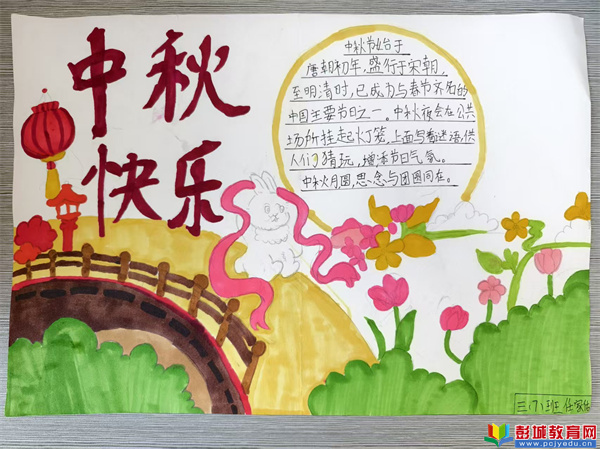 中秋
快乐
中秋节始于
唐朝初年,盛行于宋朝,
至明清时,已成为与春节齐名的
中国主要节日之一。中秋夜会在公共
场所挂起灯笼,上面写着迷语,供
人们猜玩,增添节日气氛。
中秋月圆,思念与团圆同在。
三(7)班
彭城教育网
www.pcjyedu.cn